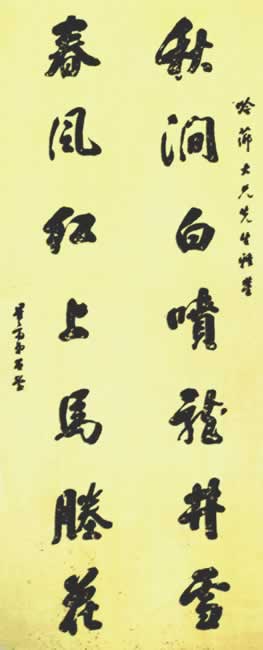 大兄先生雅鑒
秋澗白噴龍井雪
春風紅上馬塍花